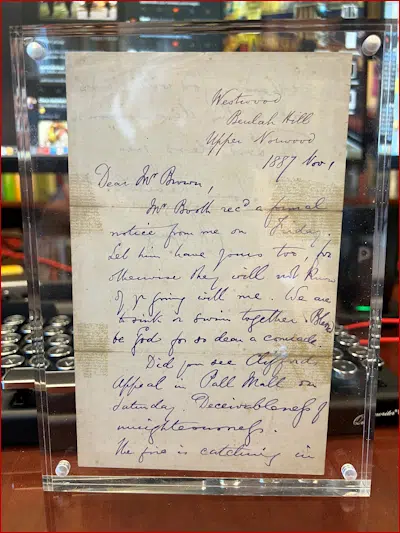 Westwood
Beulah Hill
Upper Norwood
1887 Nov 1
Dear Mr Brown,
Mr Booth recd a formal
notice from me on Friday.
Let him have yours too, for
otherwise they will not know
of yr going with me. We are
to sink or swim together. Blessed
be God for so dear a comrade.
Did you see Clifford's
Appeal in Pall Mall on
Saturday. Deceivableness of
unrighteousness.
The fire is catching in